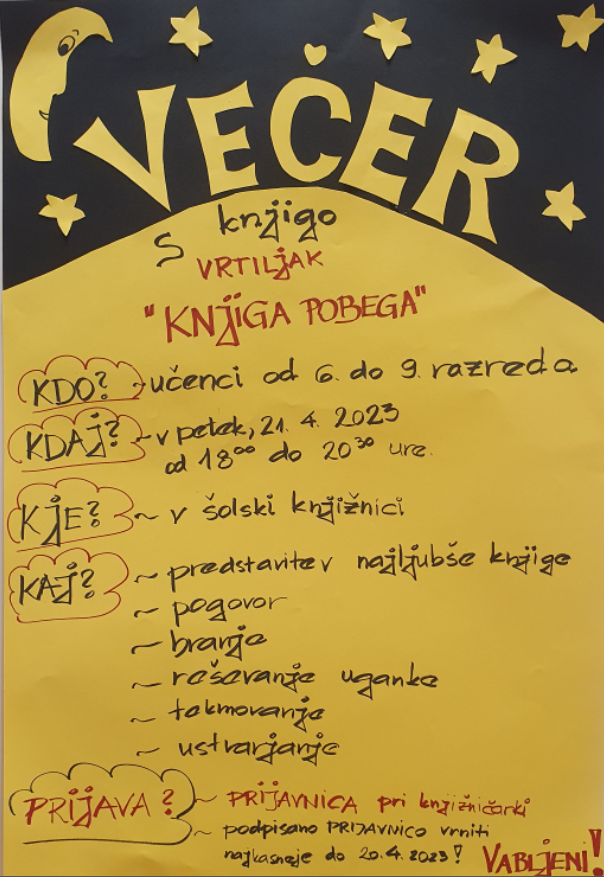 VEČER
s knjigo
VRTILJAK
"KNJIGA POBEGA"
KDO? ~ učenci od 6. do 9. razreda
KDAJ? ~ v petek, 21. 4. 2023
od 18⁰⁰ do 20³⁰ ure.
KJE? ~ v šolski knjižnici
KAJ? ~ predstavitev najljubše knjige
~ pogovor
~ branje
~ reševanje uganke
~ tekmovanje
~ ustvarjanje
PRIJAVA? ~ PRIJAVNICA pri knjižničarki
~ podpisano PRIJAVNICO vrniti
najkasneje do 20.4.2023!
VABLJENI!